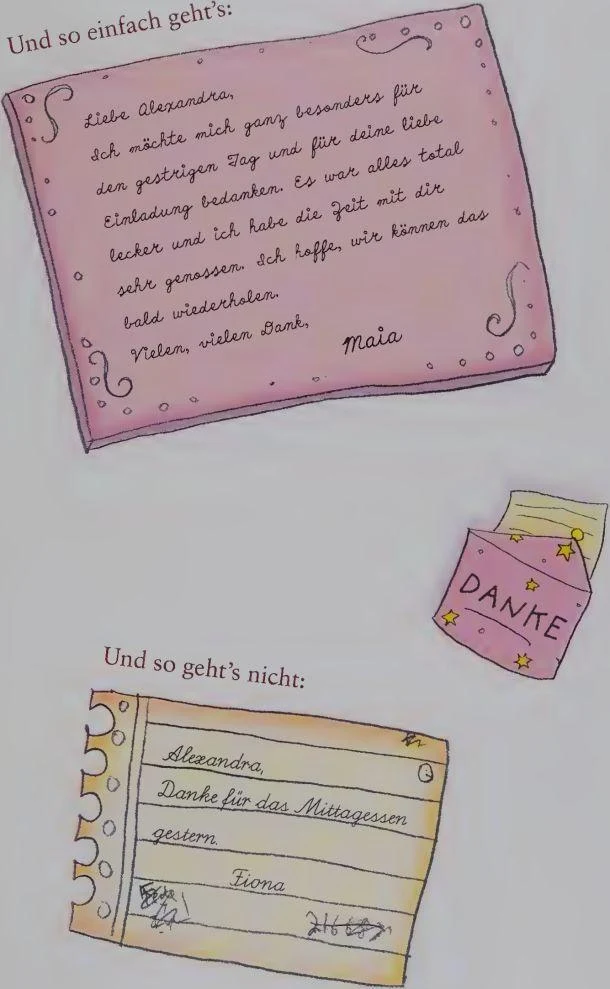 Und so einfach geht's:
Liebe Alexandra,
Ich möchte mich ganz besonders für
den gestrigen Tag und für deine liebe
Einladung bedanken. Es war alles total
lecker und ich habe die Zeit mit dir
sehr genossen. Ich hoffe, wir können das
bald wiederholen.
Vielen, vielen Dank,
Maia
DANKE
Und so geht's nicht:
Alexandra,
Danke für das Mittagessen
gestern.
Fiona